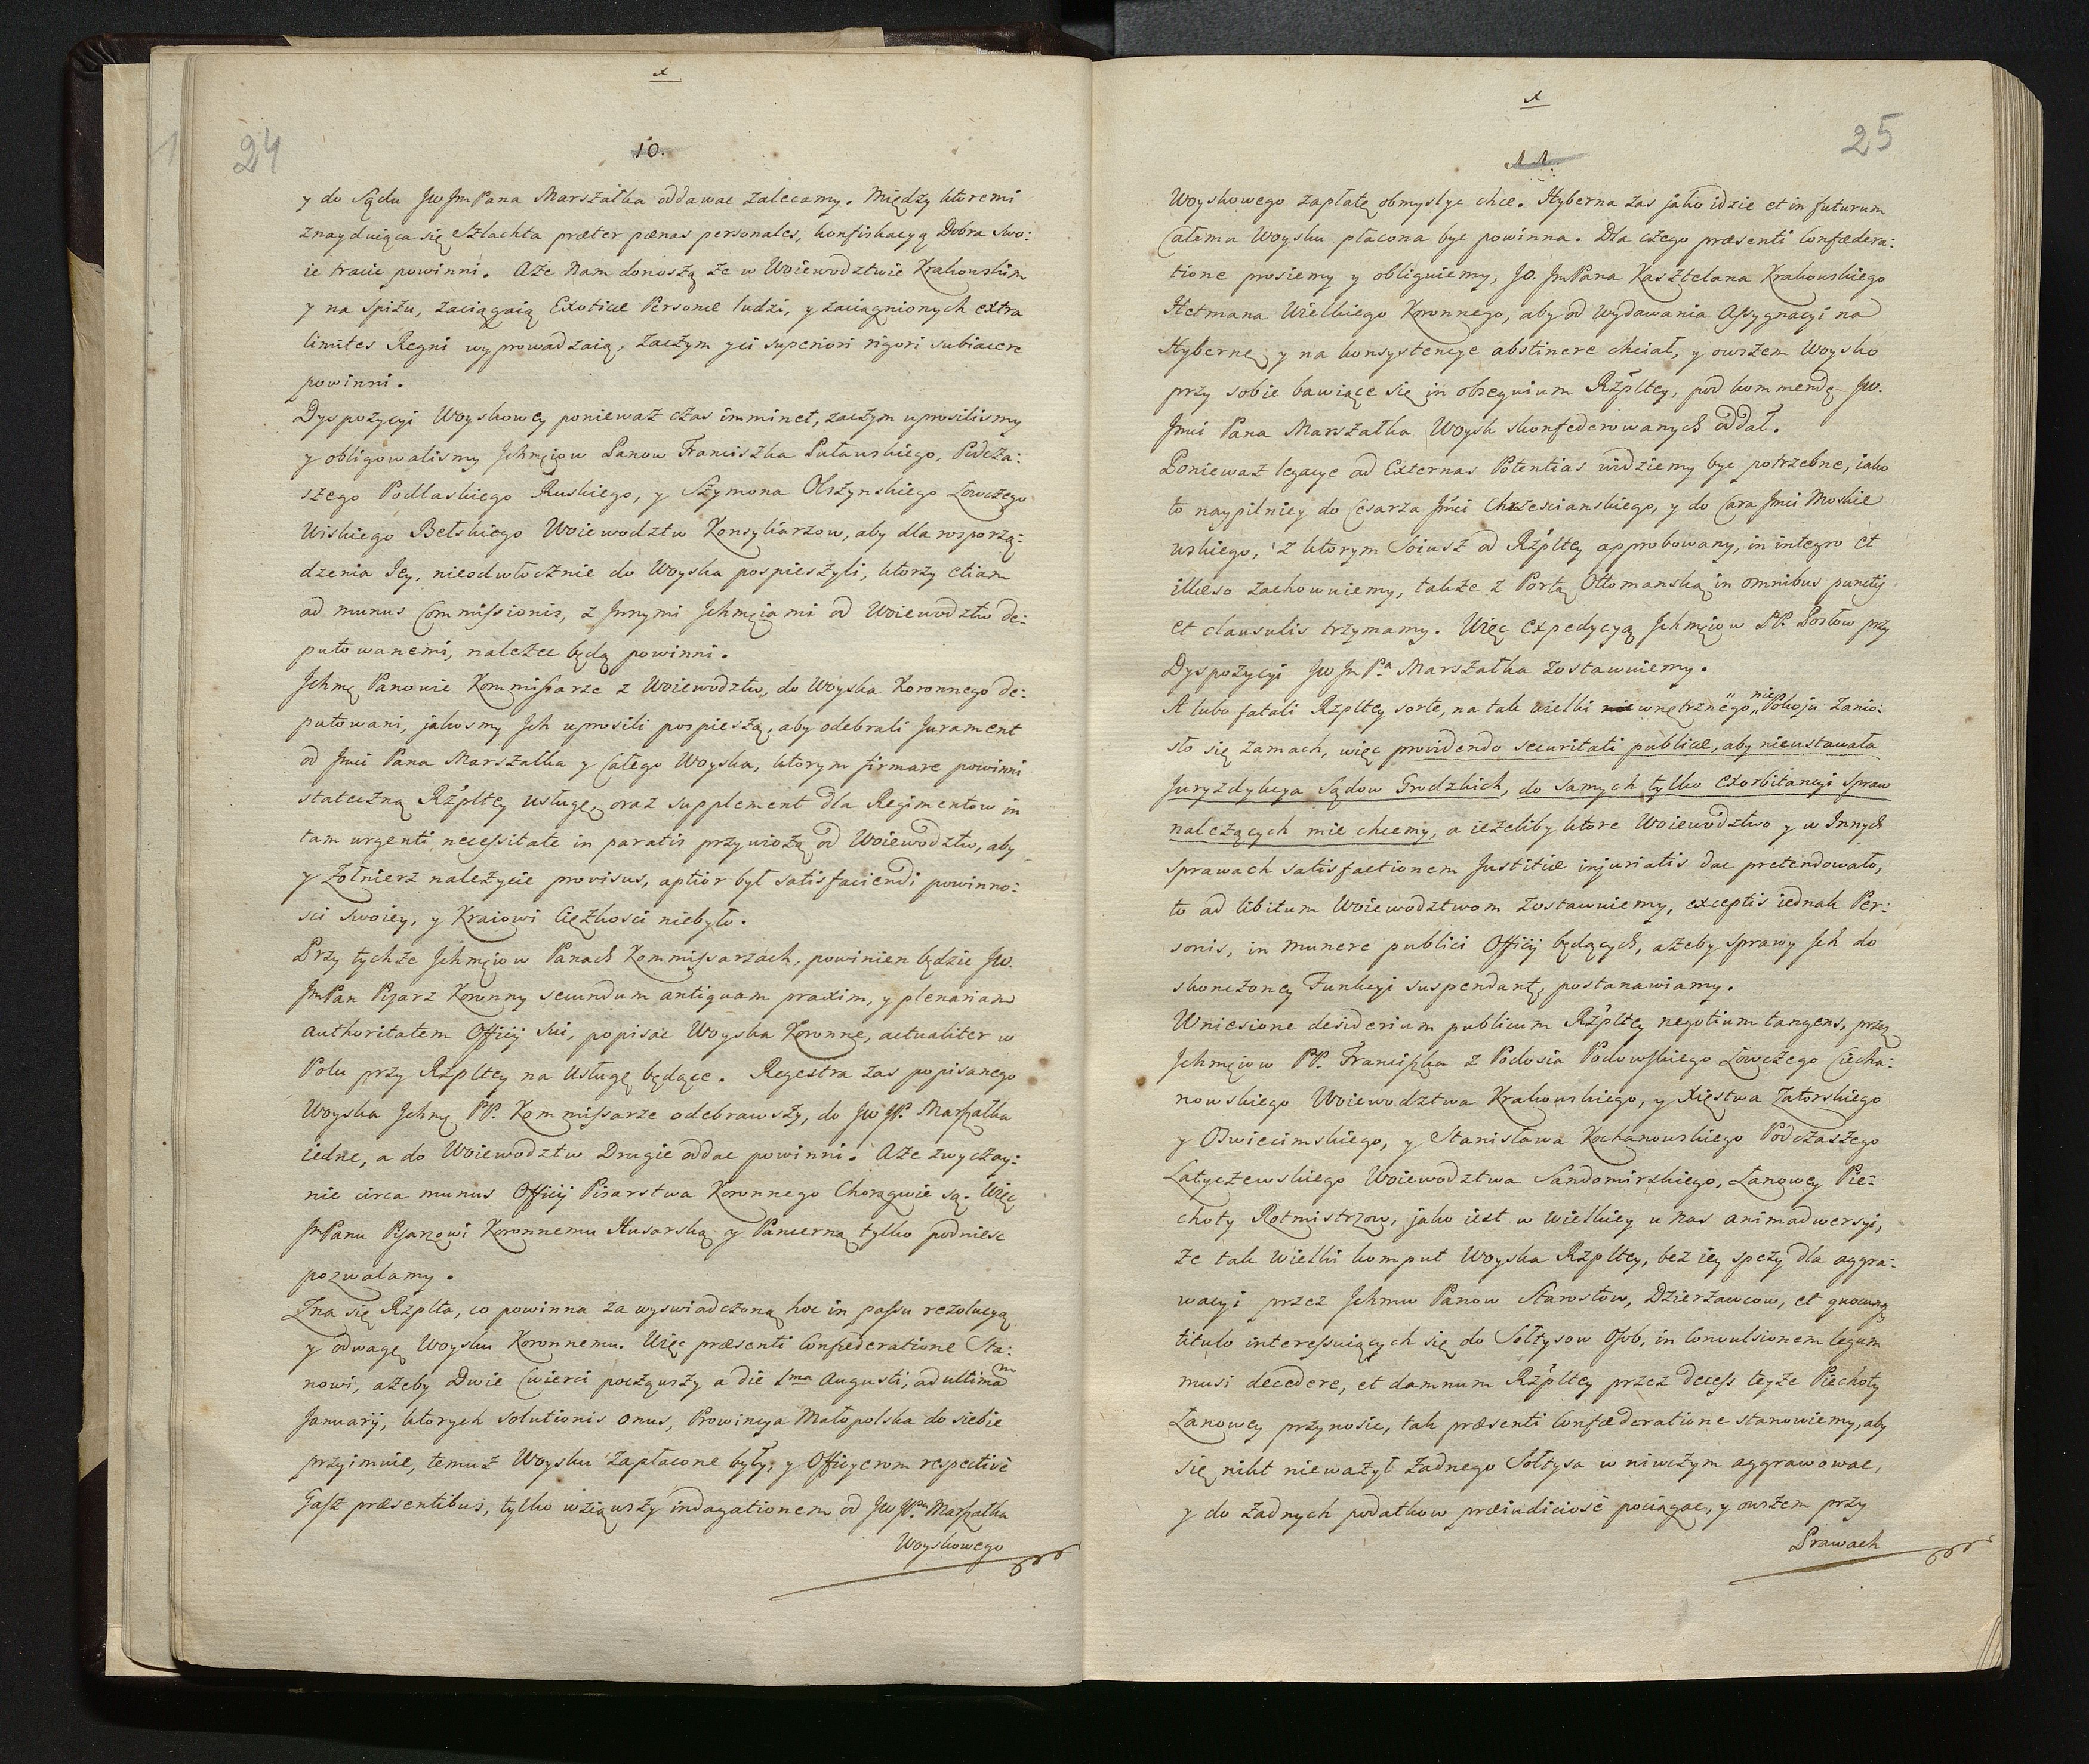 x
24
10.
y do Sądu JwJmPana Marszałka oddawac zalecamy. Między ktoremi
znayduiąca się Szlachta præter pænas personales, konfiskacyą Dobra swo:
ie tracic powinni. Aże Nam donoszą że w Woiewodztwie Krakowskim
y na Spiżu, zaciągaią Exoticæ Personæ ludzi, y zaciągnionych extra
limites Regni wyprowadzaią, zaczym y ci superiori rigori subiacere
powinni.
Dyspozycyi Woyskowey ponieważ czas imminet, zaczym uprosilismy
y obligowalismy Jchmęiow Panow Franciszka Puławskiego, Podcza:
szego Podlaskiego Ruskiego, y Szymona Olszynskiego Łowczego
Wiskiego Bełskiego Woiewodztw Konsyliarzow, aby dla rosporzą:
dzenia Jey, nieodwłocznie do Woyska pospieszyli, ktorzy etiam
ad munus Commissionis, z Jnnymi Jchmęiami od Woiewodztw de:
putowanemi, należec będą powinni.
Jchmę Panowie Kommissarze z Woiewodztw, do Woyska Koronnego de:
putowani, jakosmy Jch uprosili pospieszą, aby odebrali Jurament
od Jmci Pana Marszałka y Całego Woyska, ktorym firmare powinni
stateczną Rżpltey usługę, oraz supplement dla Regimentow in
tam urgenti necessitate in paratis przywiozą od Woiewodztw, aby
y Żołnierz należycie provisus, aptior był satisfaciendi powinno:
sci swoiey, y Kraiowi ciężkosci niebyło.
Przy tychże Jchmęiow Panach Kommissarzach, powinien będzie Jw.
JmPan Pisarz Koronny secundum antiquam praxim, y plenariam
authoritatem Officij sui, popisac Woyska Koronne, actualiter w
Polu przy Rżpltey na Usługę będące. Regestra zas popisanego
Woyska Jchmę PP. Kommissarze odebrawszy, do JwJP. Marszałka
iedne, a do Woiewodztw Drugie oddac powinni. Aże zwyczay:
nie circa munus Officij Pisarstwa Koronnego Chorągwie są. Więc
JmPanu Pisarzowi Koronnemu Husarską y Pancerną tylko podniesc
pozwalamy.
Zna się Rżplta, co powinna za wyswiadczoną hoc in passu rezolucyą
y odwagę Woysku Koronnemu. Więc præsenti Confæderatione Sta:
nowi, ażeby Dwie Cwierci począwszy a die 1ma Augusti, ad ultimam
Januarij, ktorych solutionis onus, Prowincya Małopolska do siebie
przyimuie, temuż Woysku zapłacone były, y Officyerom respectivè
Gaż præsentibus, tylko wziąwszy indagationem od JwJPna Marszałka
Woyskowego
x
25
11.
Woyskowego zapłatę obmyslyc chce. Hyberna zas jako idzie et in futurum
Całemu Woysku płacona byc powinna. Dla czego præsenti Confædera:
tione prosiemy y obliguiemy, Jo. JmPana Kasztelana Krakowskiego
Hetmana Wielkiego Koronnego, aby od wydawania Assygnacyi na
Hybernę y na konsystencye abstinere chciał, y owszem Woysko
przy sobie bawiące się in obsequium Rżpltey, pod kommendę Jw.
Jmci Pana Marszałka Woysk skonfederowanych oddał.
Ponieważ legacye ad Externas Potentias widziemy byc potrzebne, iako
to naypilniey do Cesarza Jmci Chrzescianskiego, y do Cara Jmci Moskie
wskiego, z ktorym Soiusz od Rżpltey approbowany, in integro et
illæso zachowuiemy, także z Portą Ottomanską in omnibus punctis
et clausulis trzymamy. Więc expedycyą Jchmęiow PP. Posłow przy
Dyspozycyi JwJmPa Marszałka zostawuiemy.
A lubo fatali Rzpltey sorte, na tak wielki nie wnętrznego „nie„ Pokoju zanio:
sło się zamach, więc providendo securitati publicæ, aby nieustawała
Juryzdykcya Sądow Grodzkich, do samych tylko exorbitancyi spraw
należących mie chcemy, a ieżeliby ktore Woiewodztwo y w Jnnych
sprawach satisfactionem Justitiæ injuriatis dac pretendowało,
to ad libitum Woiewodztwom zostawuiemy, exceptis iednak Per:
sonis, in munere publici Officij będących, ażeby sprawy Jch do
skonczoney Funkcyi suspendant, postanawiamy.
Wniesione desiderium publicum Rżpltey negotium tangens, przez
Jchmęiow PP. Franciszka z Podosia Podowskiego Łowczego Ciecha:
nowskiego Woiewodztwa Krakowskiego, y Xięstwa Zatorskiego
y Oswiecimskiego, y Stanisława Kochanowskiego Podczaszego
Latyczewskiego Woiewodztwa Sandomirskiego, Łanowey Pie:
choty Rotmistrzow, jako iest w wielkiey u nas animadwersyi,
że tak wielki komput Woyska Rżpltey, bez iey speży dla aggra:
wacyi przez Jchmw Panow Starostow, Dzierżawcow, et quocunq
titulo interessuiących się do Sołtysow Osob, in Convulsionem legum
musi decedere, et damnum Rżpltey przez decess teyże Piechoty
Łanowey przynosic, tak præsenti Confæderatione stanowiemy, aby
się nikt nieważył żadnego Sołtysa w niwczym aggrawowac,
y do żadnych podatkow præiudiciosè pociągac, y owszem przy
Prawach